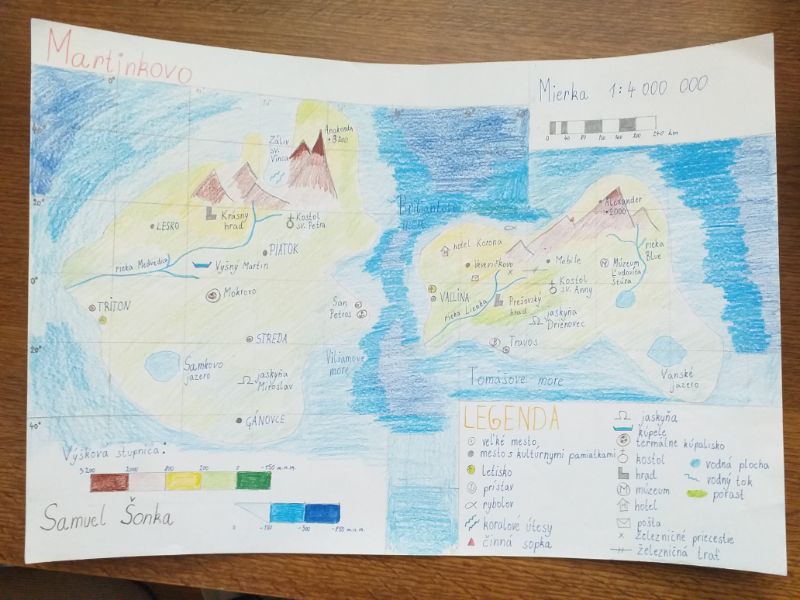 Martinkovo
Mierka 1:4 000 000
0 40 80 120 160 200 240 km
0°
20°
0°
20°
40°
Záliv
sv.
Vinca
Anakonda
LESKO
Krásny
hrad
Kostol
sv. Petra
PIATOK
rieka Medvedica
Vyšný Martin
Mokrovo
TRITON
San
Petros
STREDA
Samkovo
jazero
jaskyňa
Miroslav
GÁNOVCE
Viliamove
more
hotel Korona
Veveričkovo
Mobile
Alexander
2000
rieka
Blue
Múzeum
Ľudovíta
Štúra
VALLINA
rieka Lienka
Prešovský
hrad
Kostol
sv. Anny
jaskyňa
Drienovec
Travos
Vanské
jazero
Tomášove more
Výšková stupnica:
3200 2000 800 200 0 -150 m.n.m.
0 -150 -300 m.n.m.
Samuel Šonka
LEGENDA
veľké mesto
mesto s kultúrnymi pamiatkami
letisko
prístav
rybolov
koralové útesy
činná sopka
jaskyňa
kúpele
termálne kúpalisko
kostol
hrad
múzeum
hotel
pošta
železničné priecestie
železničná trať
vodná plocha
vodný tok
porast